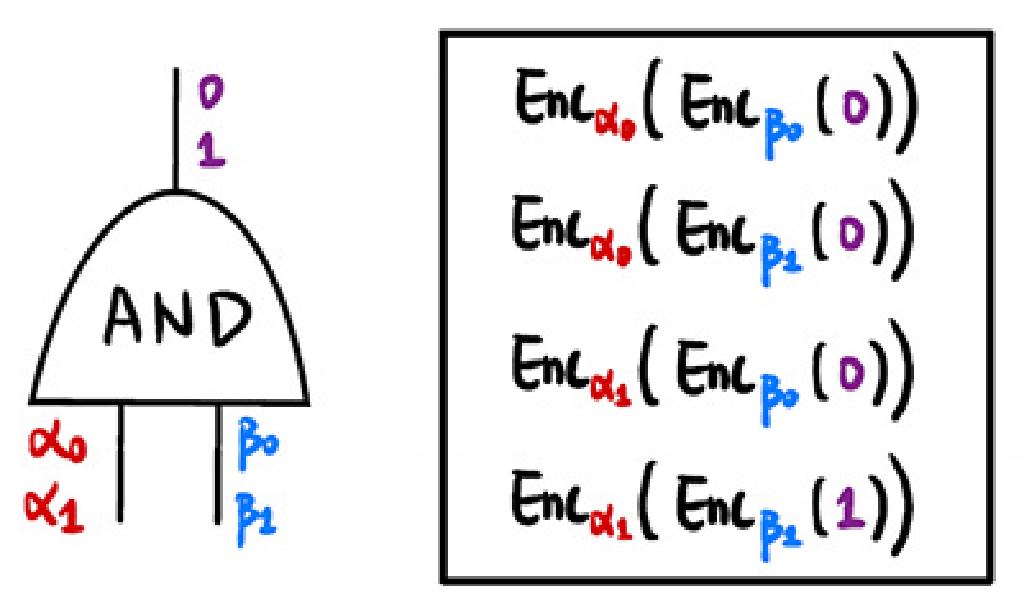 0
1
AND
α₀
α₁
β₀
β₁
Enc_α₀(Enc_β₀(0))
Enc_α₀(Enc_β₁(0))
Enc_α₁(Enc_β₀(0))
Enc_α₁(Enc_β₁(1))